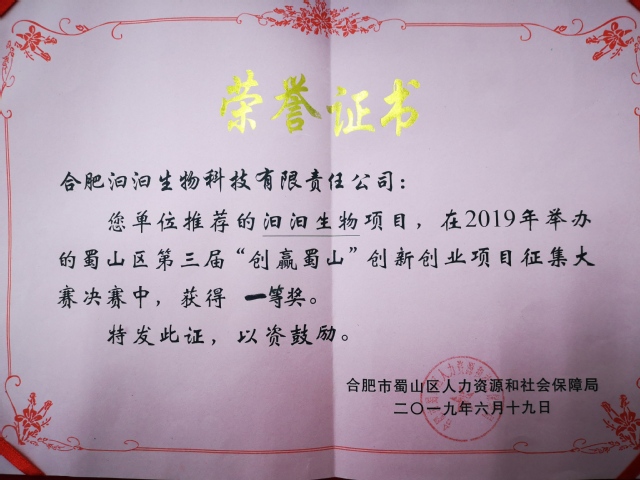 荣誉证书
合肥汩汩生物科技有限责任公司：
您单位推荐的汩汩生物项目，在2019年举办
的蜀山区第三届“创赢蜀山”创新创业项目征集大
赛决赛中，获得 一等奖。
特发此证，以资鼓励。
合肥市蜀山区人力资源和社会保障局
二〇一九年六月十九日